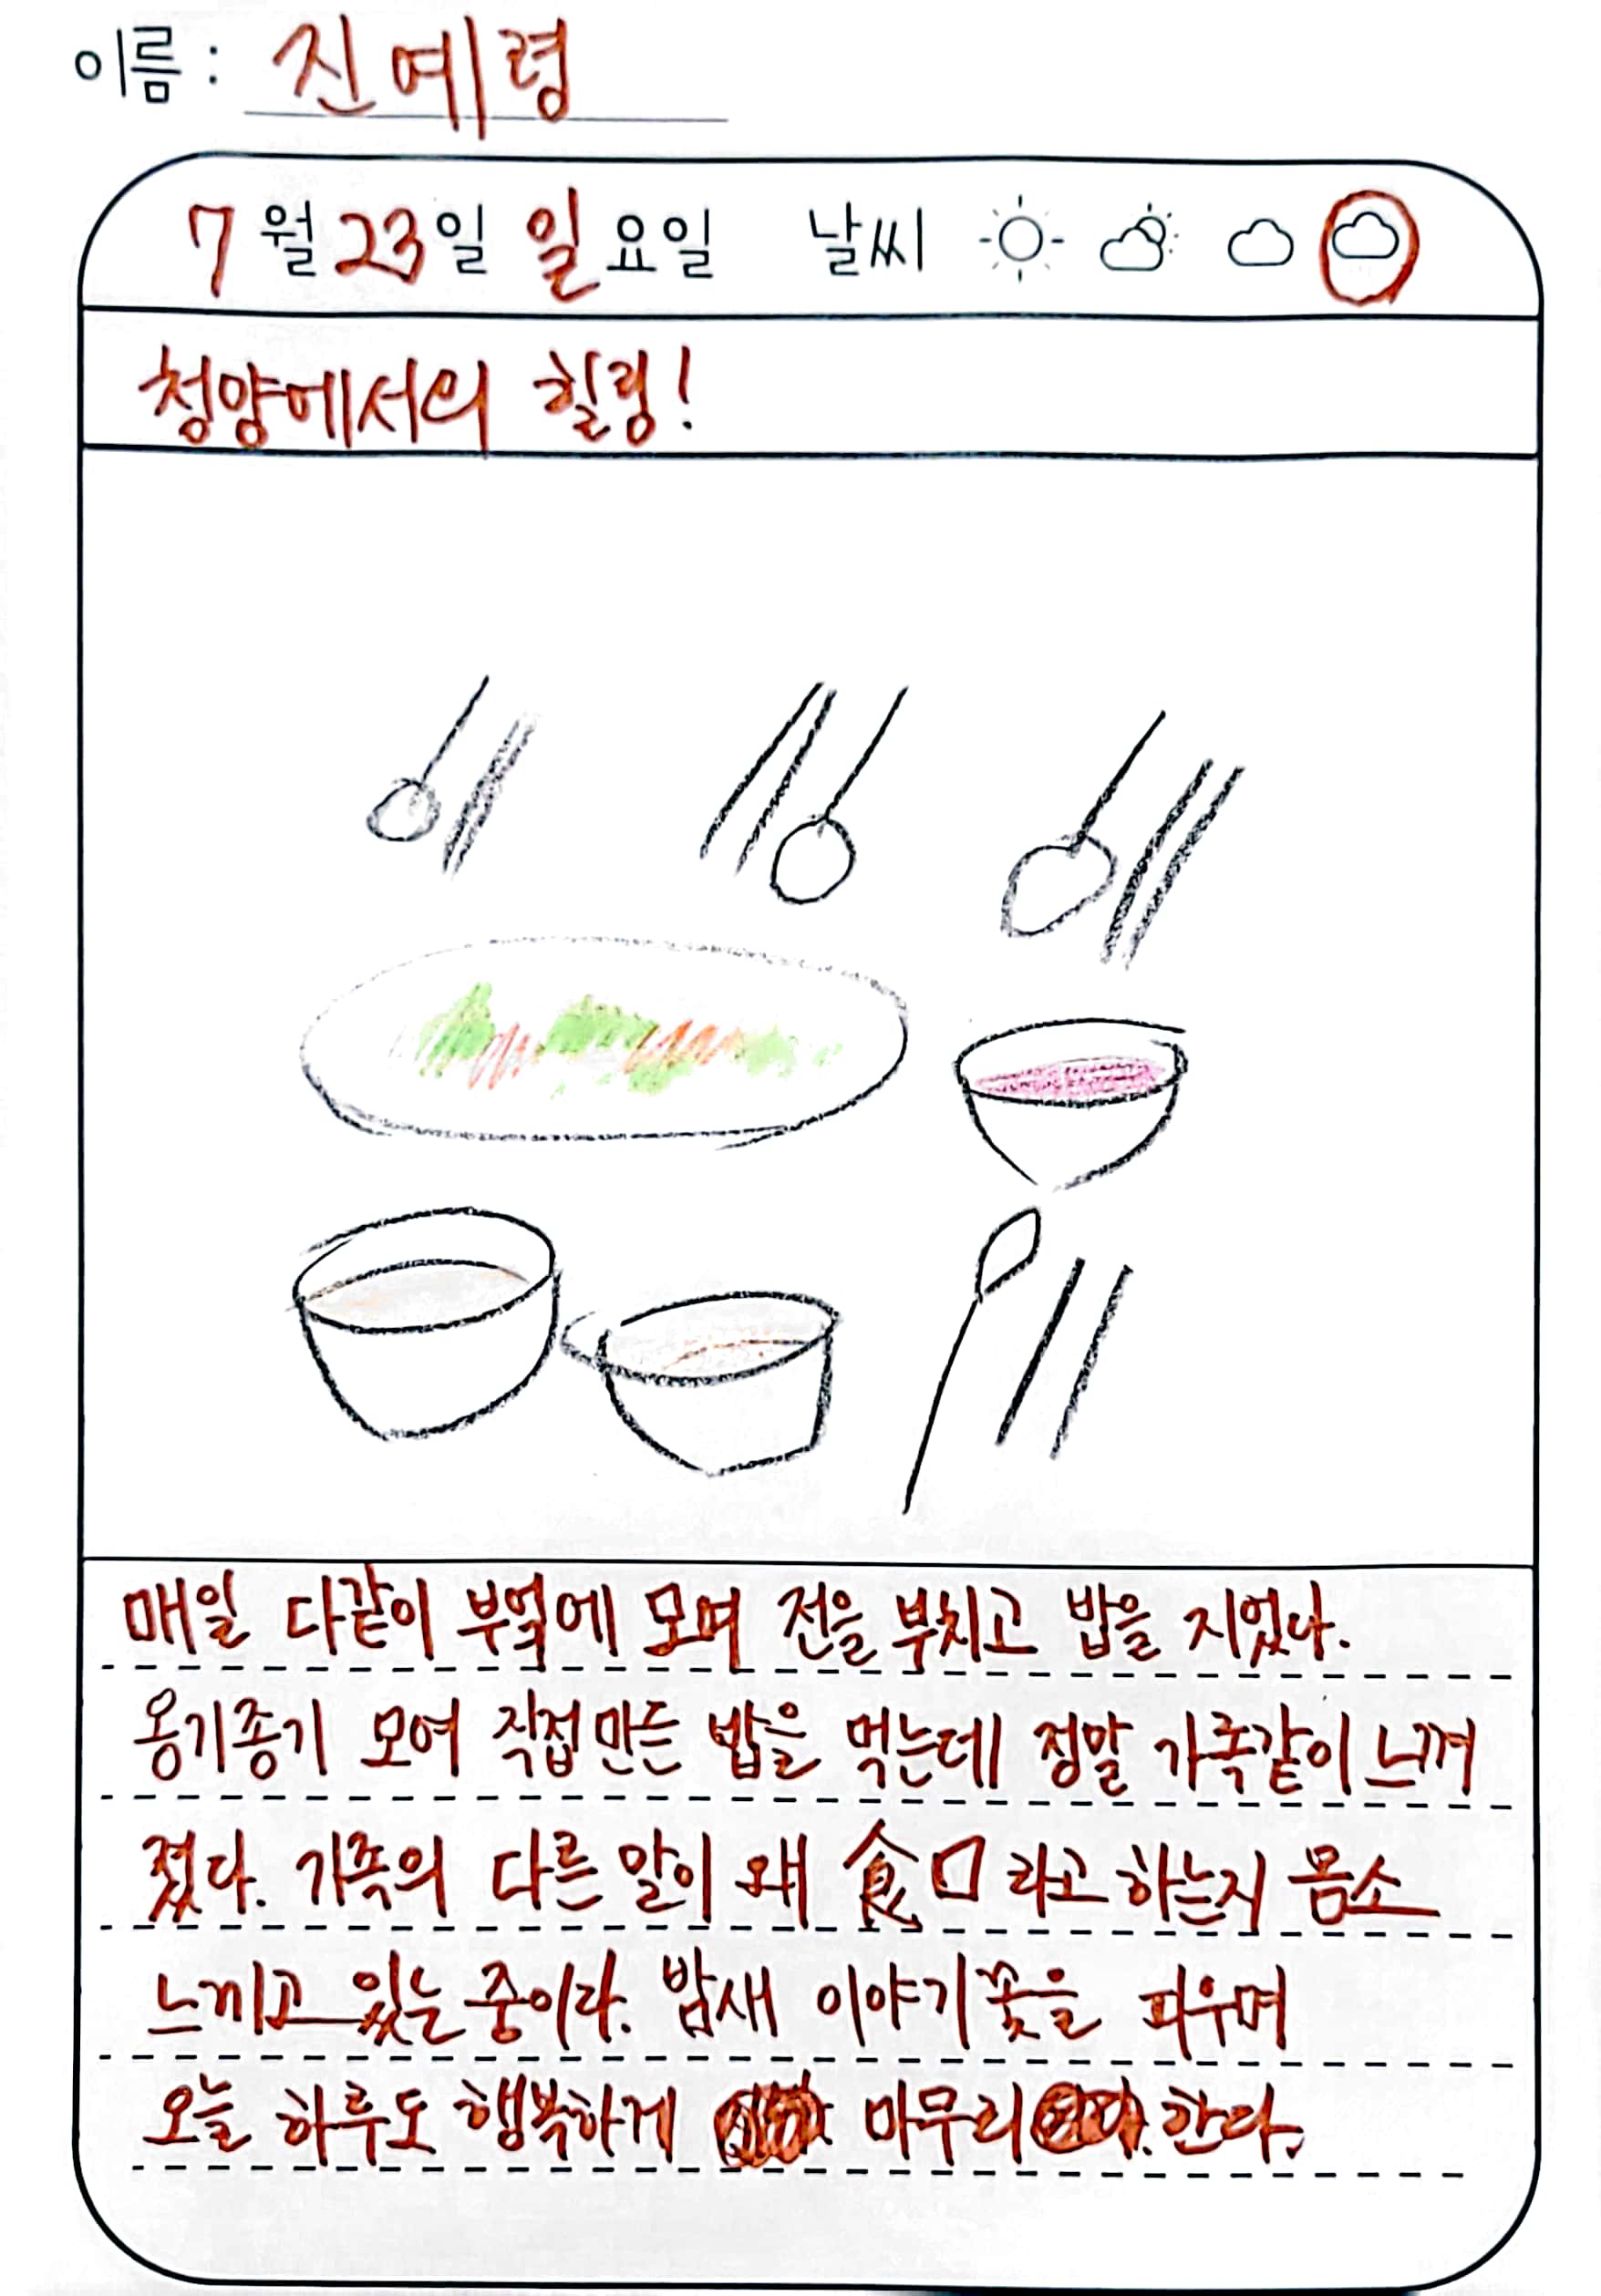 이름 : 진예령
7월 23일 일요일 날씨
청양에서의 힐링!
매일 다같이 부엌에 모여 전을 부치고 밥을 지었다.
옹기종기 모여 직접 만든 밥을 먹는데 정말 가족같이 느껴
졌다. 가족의 다른 말이 왜 食口라고 하는지 몸소
느끼고 있는 중이다. 밤새 이야기꽃을 피우며
오늘 하루도 행복하게 마무리 한다.